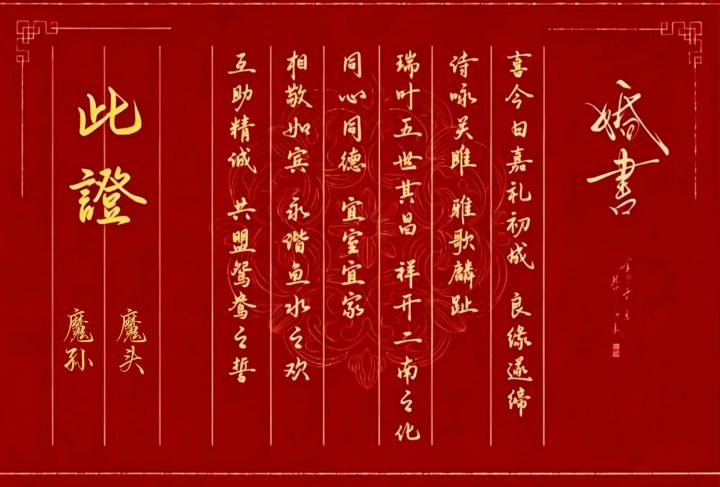 婚書
喜今日嘉礼初成 良缘遂缔
诗咏关雎 雅歌麟趾
瑞叶五世其昌 祥开二南之化
同心同德 宜室宜家
相敬如宾 永谐鱼水之欢
互助精诚 共盟鸳鸯之誓
此證
魔头
魔孙